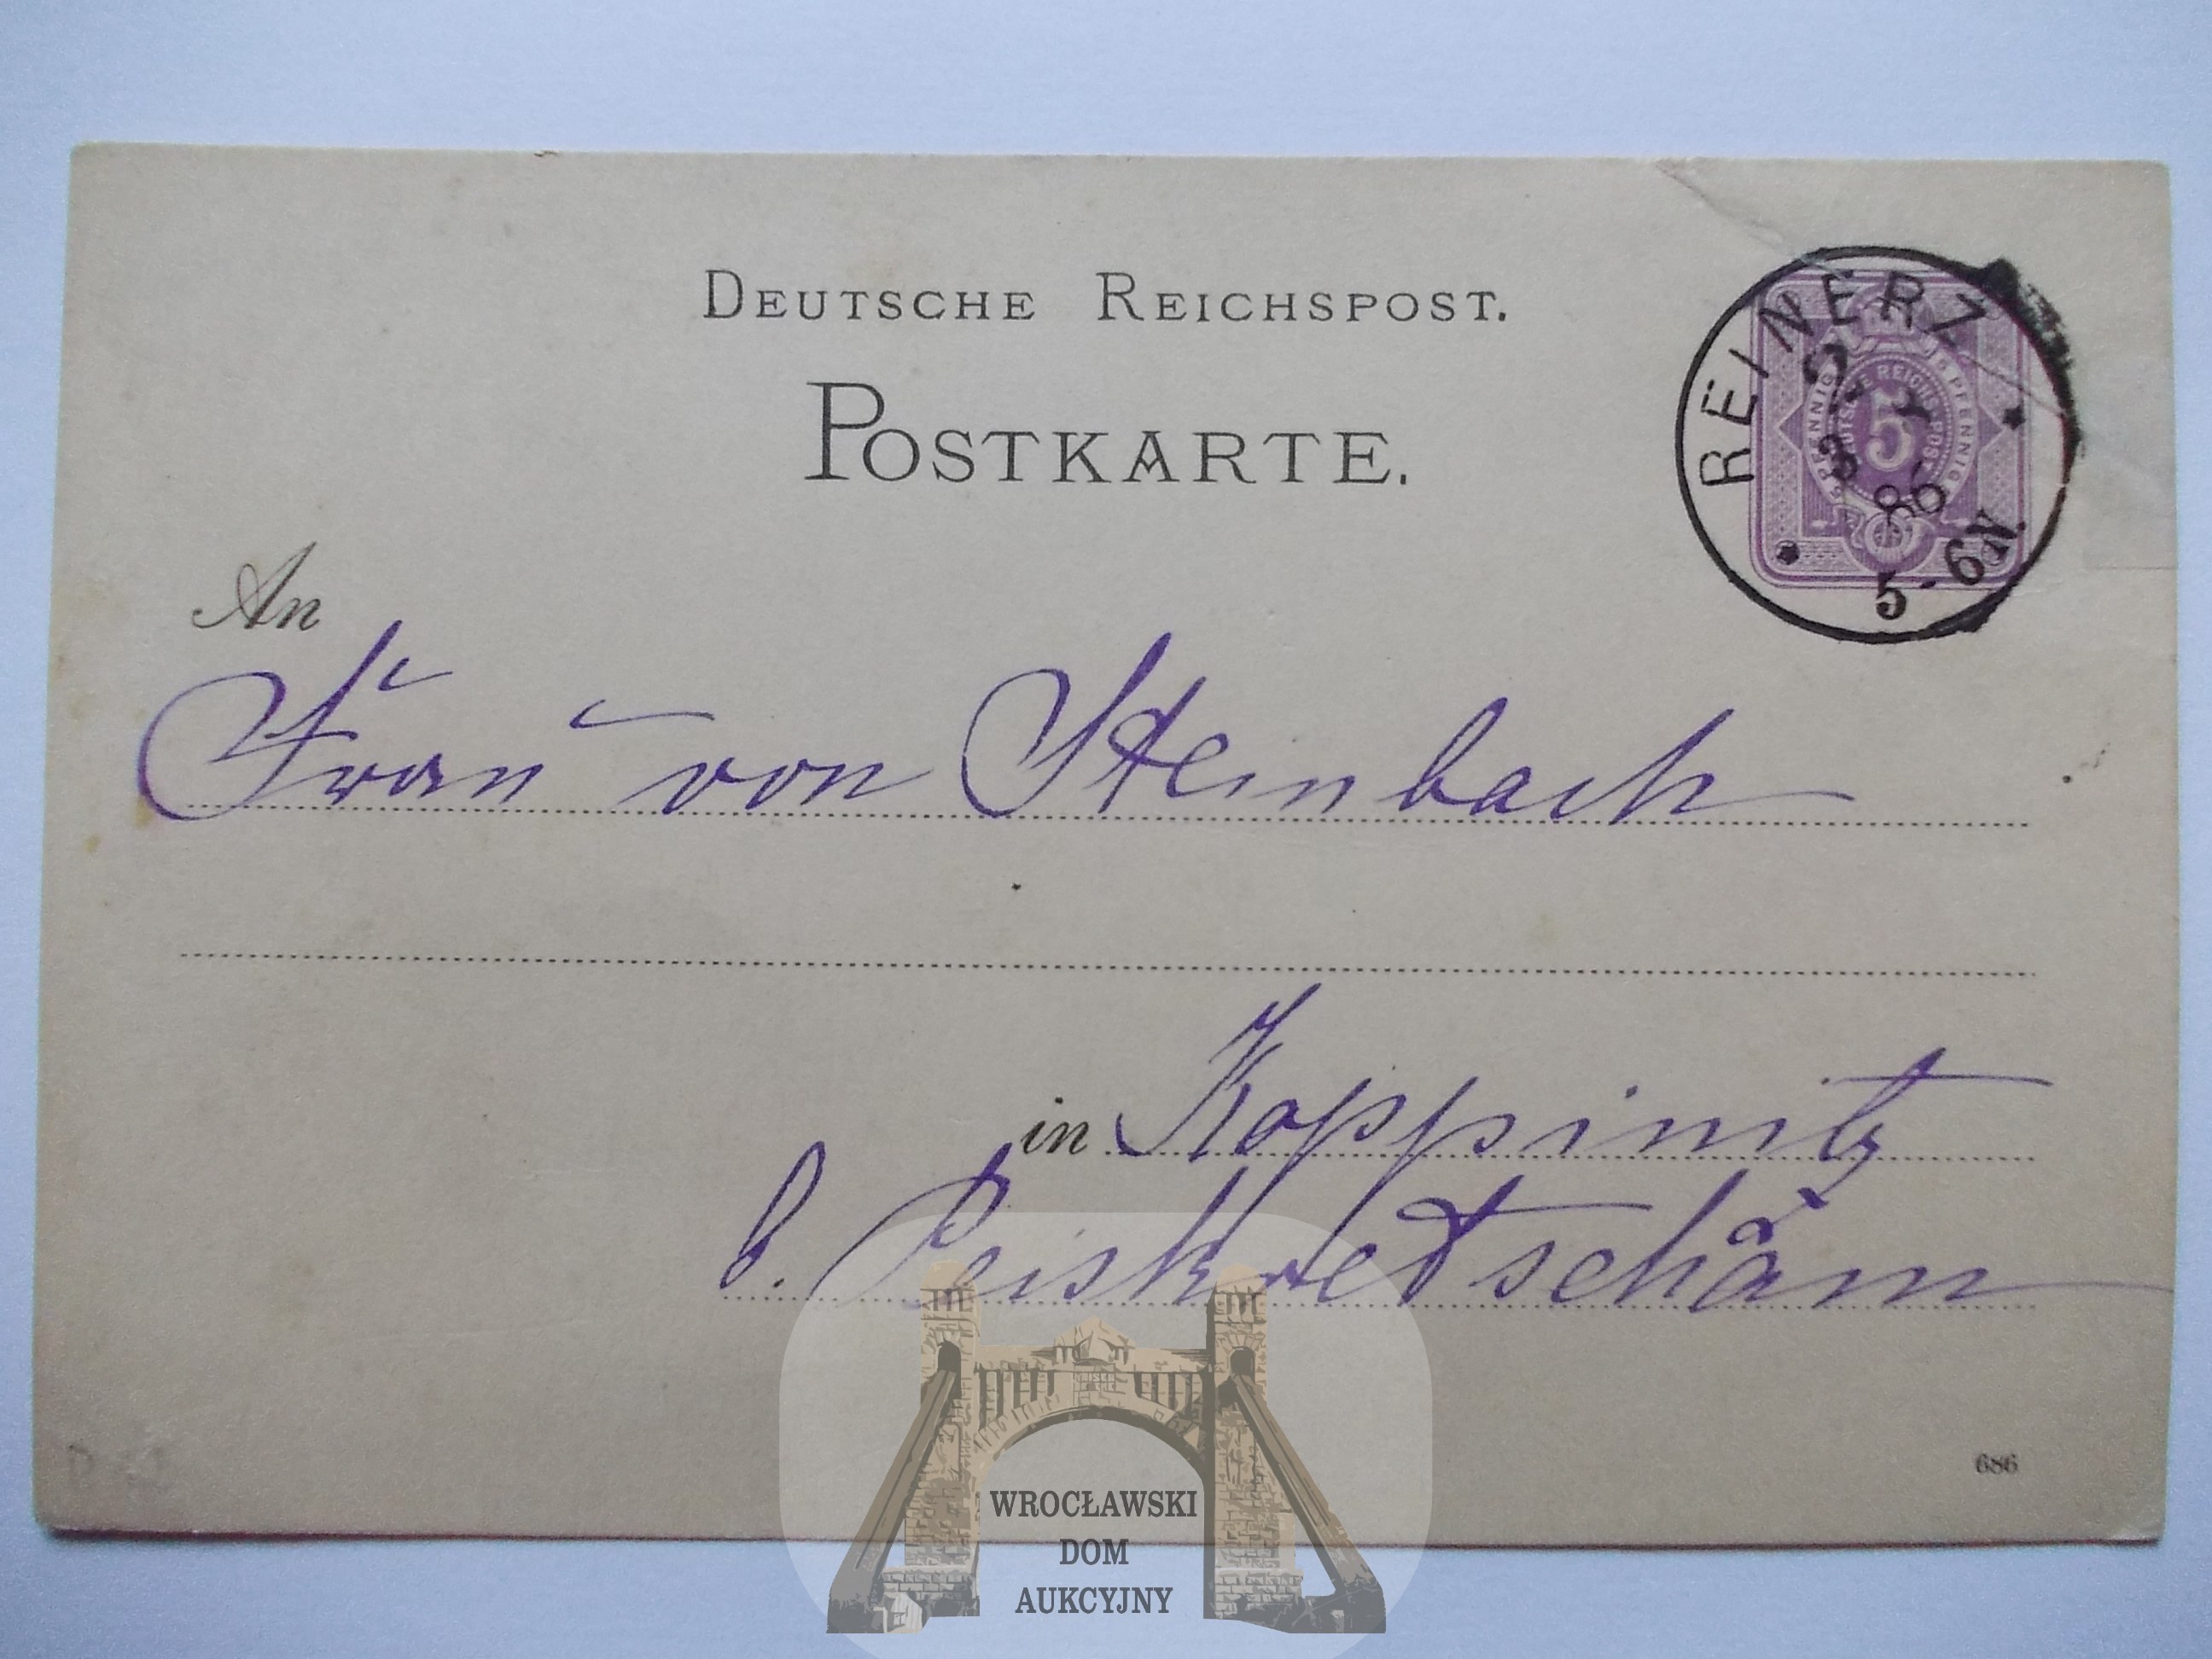 DEUTSCHE REICHSPOST.
POSTKARTE.
REINERZ
5 PFENNIG 5 PFENNIG
DEUTSCHE REICHS-POST
5
86
5-6N.
An
Frau von Steinbach
in Koppinitz
b. Peiskretscham
686
WROCŁAWSKI
DOM
AUKCYJNY